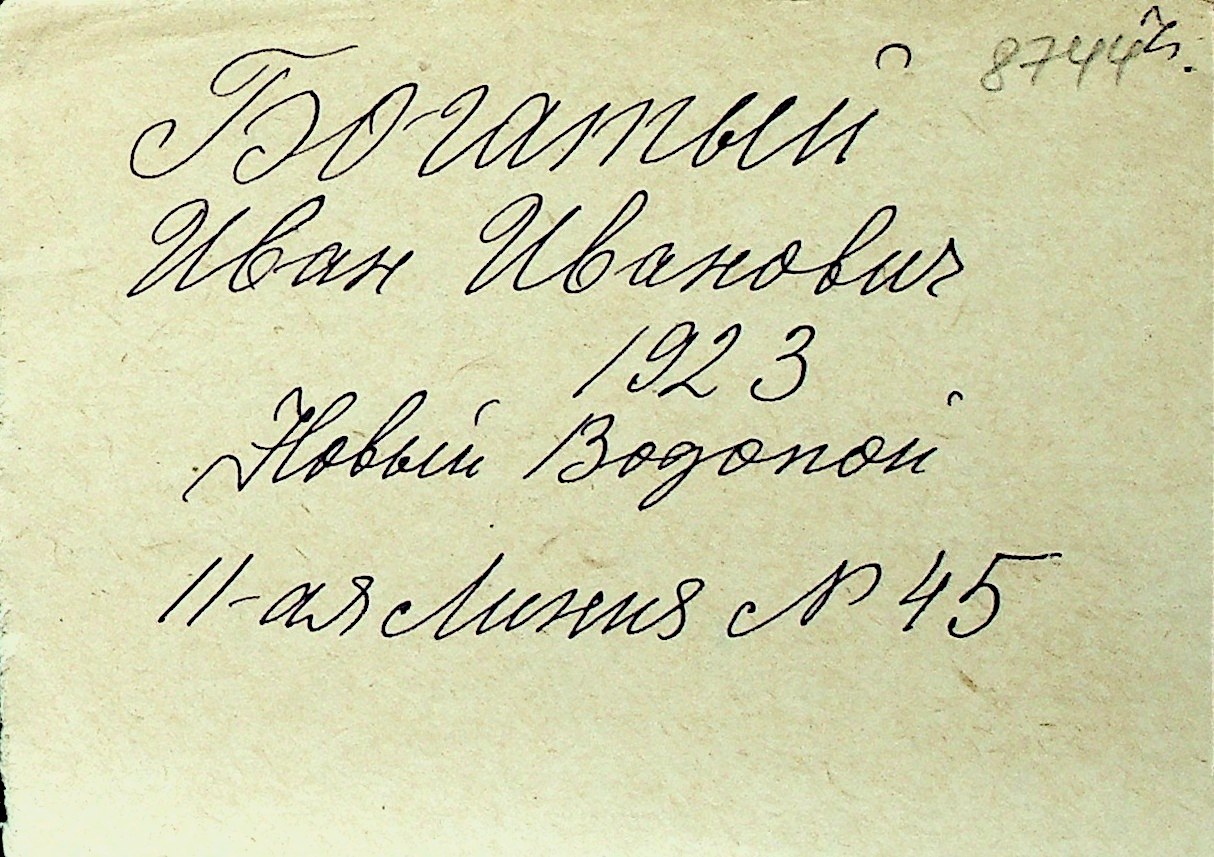 8744
Богатый
Иван Иванович
1923
Новый Водопой
11-ая Линия № 45